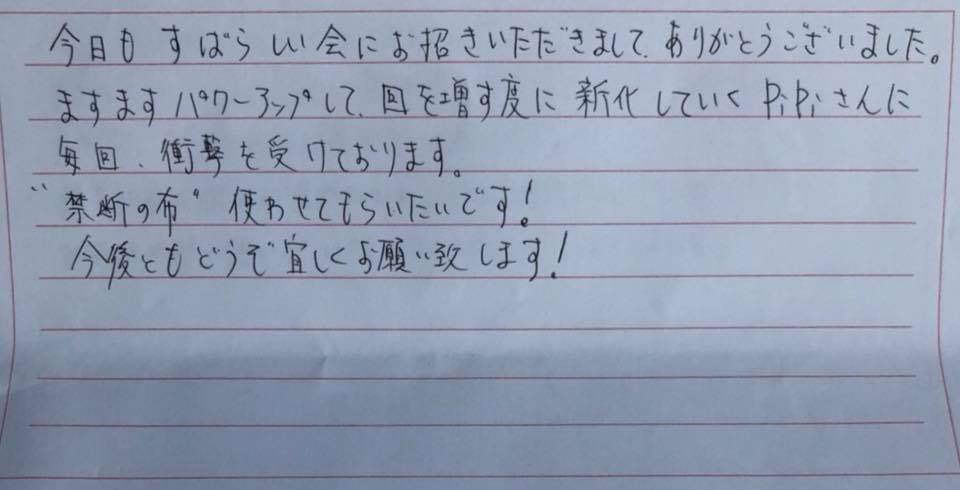 今日も すばらしい会にお招きいただきまして、ありがとうございました。
ますますパワーアップして、回を増す度に 新化していく PiPiさんに
毎回、衝撃を受けております。
"禁断の布" 使わせてもらいたいです!
今後ともどうぞ宜しくお願い致します!